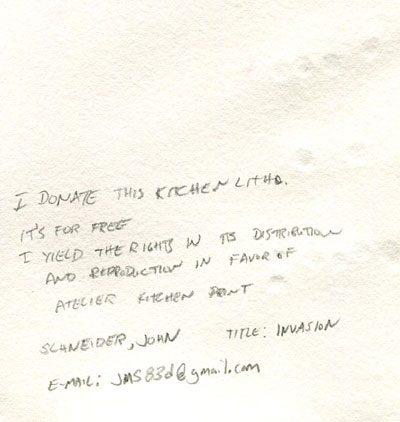 I DONATE THIS KITCHEN LITHO.
IT'S FOR FREE
I YIELD THE RIGHTS IN ITS DISTRIBUTION
AND REPRODUCTION IN FAVOR OF
ATELIER KITCHEN PRINT
SCHNEIDER, JOHN TITLE: INVASION
E-MAIL: JMS83d@gmail.com